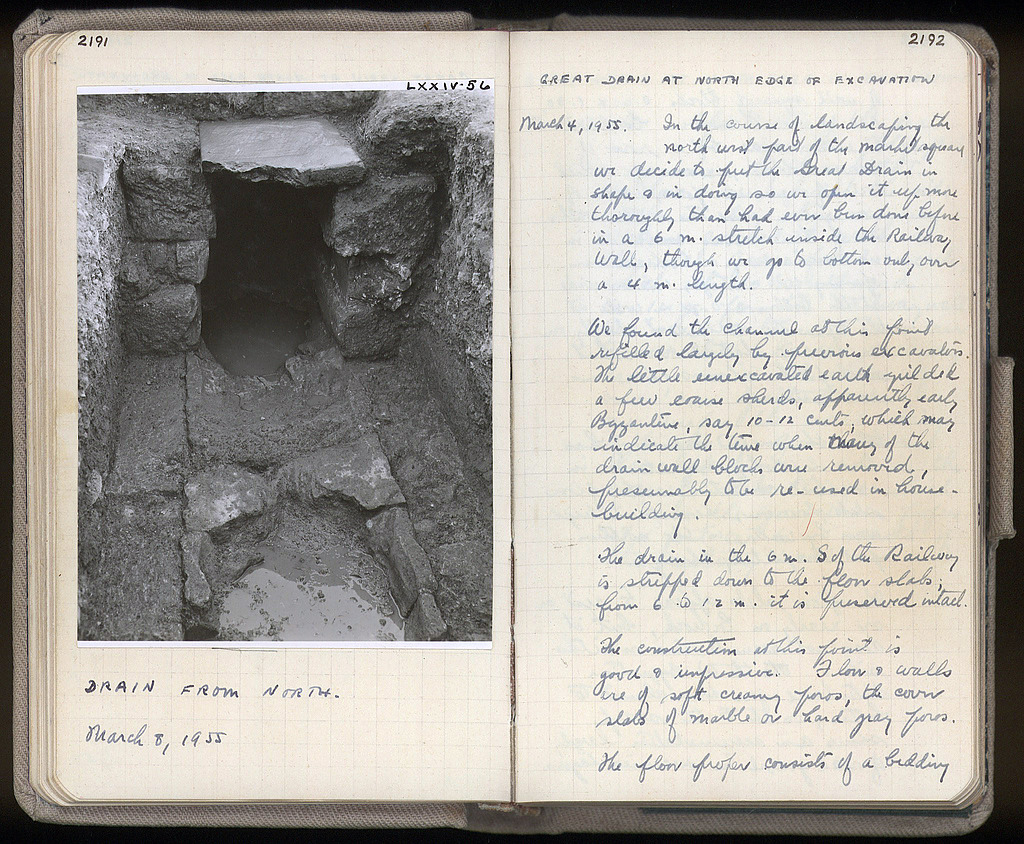 2191
LXXIV-56
DRAIN FROM NORTH.
March 8, 1955
2192
GREAT DRAIN AT NORTH EDGE OF EXCAVATION
March 4, 1955. In the course of landscaping the
north west part of the market square
we decide to put the Great Drain in
shape & in doing so we open it up more
thoroughly than had ever been done before
in a 6 m. stretch inside the Railway
Wall, though we go to bottom only over
a 4 m. length.
We found the channel at this point
refilled largely by previous excavators.
The little unexcavated earth yielded
a few coarse sherds, apparently early
Byzantine, say 10-12 cents, which may
indicate the time when many of the
drain wall blocks were removed,
presumably to be re-used in house-
building.
The drain in the 6 m. S of the Railway
is stripped down to the floor slabs;
from 6 to 12 m. it is preserved intact.
The construction at this point is
good & impressive. Floor & walls
are of soft creamy poros, the cover
slabs of marble or hard gray poros.
The floor proper consists of a bedding